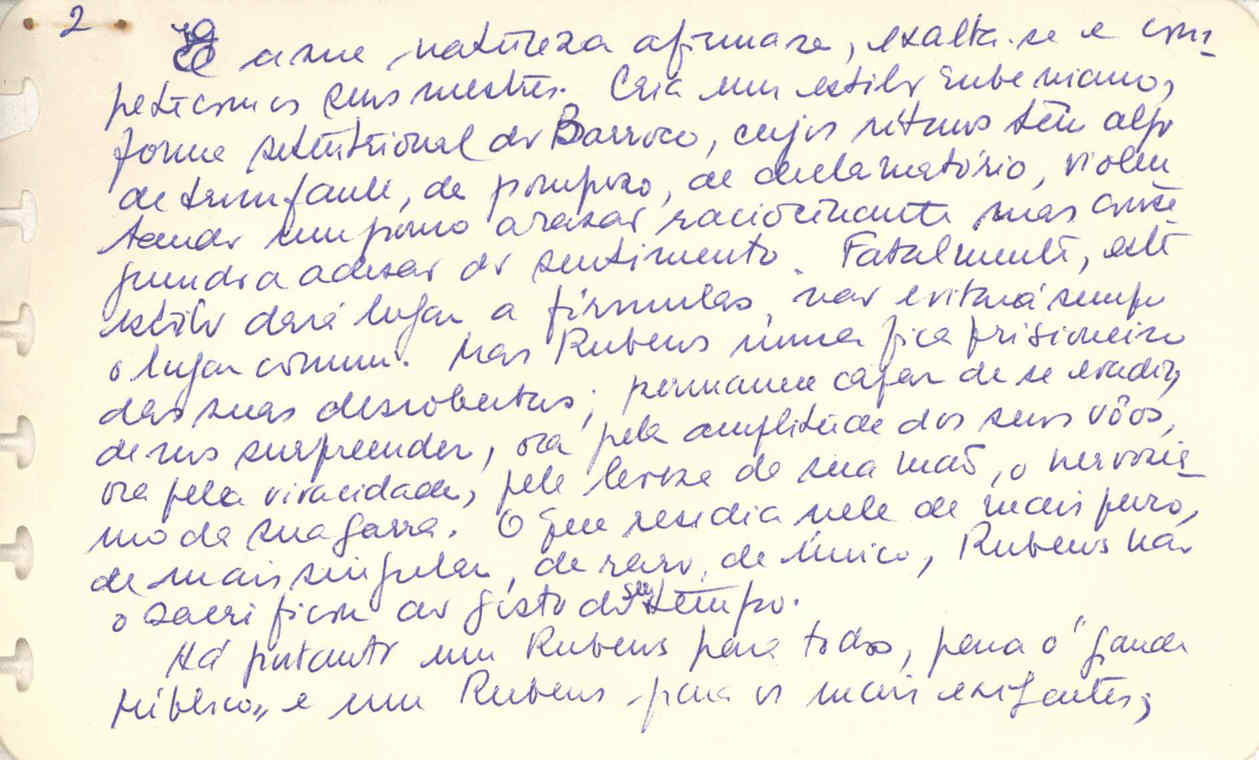 2
a sua natureza afirma-se, exalta-se e com-
pete com os seus mestres. Cria um estilo rubeniano,
forma setentrional do Barroco, cujos ritmos têm algo
de triunfante, de pomposo, de declamatório, violen
tando um pouco a razão raciocinante mas conse
guindo a adesão do sentimento. Fatalmente, este
estilo dará lugar a fórmulas, não evitará sempre
o lugar comum. Mas Rubens nunca fica prisioneiro
das suas descobertas; permanece capaz de se evadir,
de nos surpreender, ora pela amplitude dos seus vôos,
ora pela vivacidade, pela leveza de sua mão, o nervosis-
mo da sua garra. O que residia nele de mais puro,
de mais singular, de raro, de único, Rubens não
o sacrificou ao gosto do seu tempo.
Há portanto um Rubens para todos, para o "grande
público" e um Rubens para os mais exigentes;